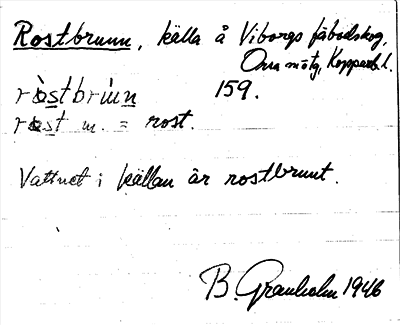 Rostbrunn, källa å Viborgs fäbodskog,
Orsa mötg, Kopparb. l.
159.
ròstbrùnn
rost m. = rost.
Vattnet i källan är rostbrunt.
B. Granholm 1946